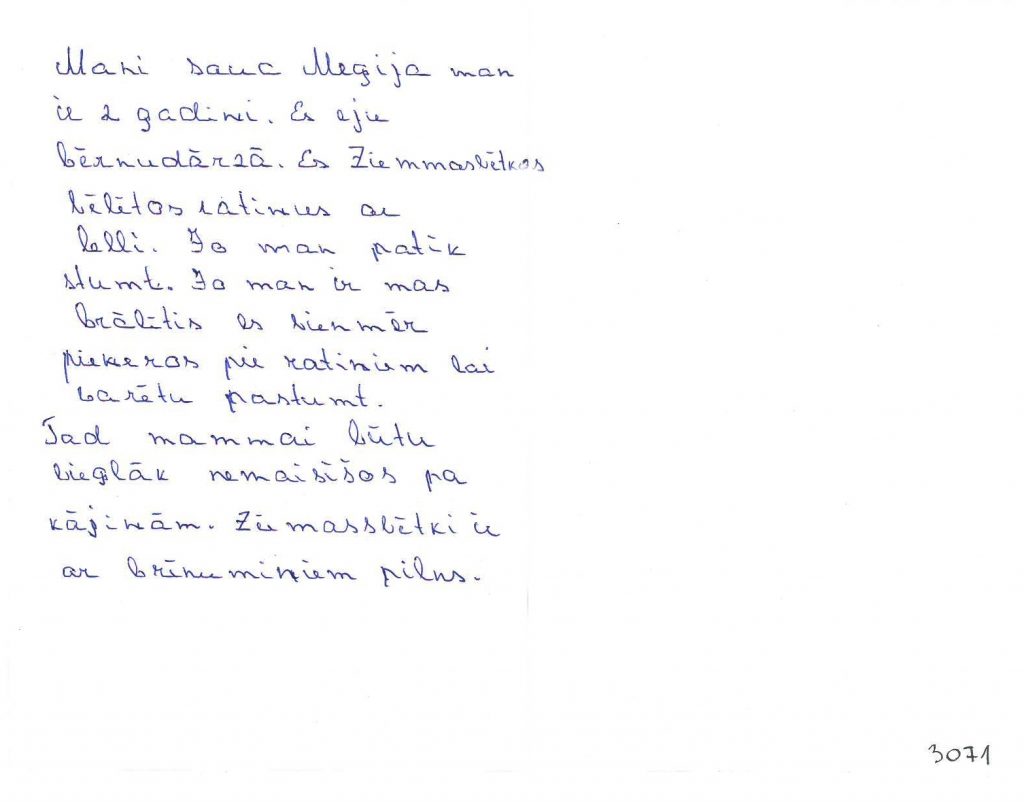 Mani sauc Megija man
ir 2 gadini. Es eju
bērnudārzā. Es Ziemmasvētkos
vēlētos ratinus ar
lelli. Jo man patīk
stumt. Jo man ir mas
brālītis es vienmēr
piekeros pie ratiniem lai
varētu pastumt.
Tad mammai būtu
vieglāk nemaisīšos pa
kājinām. Ziemassvētki ir
ar brīnuminiem pilns.
3071